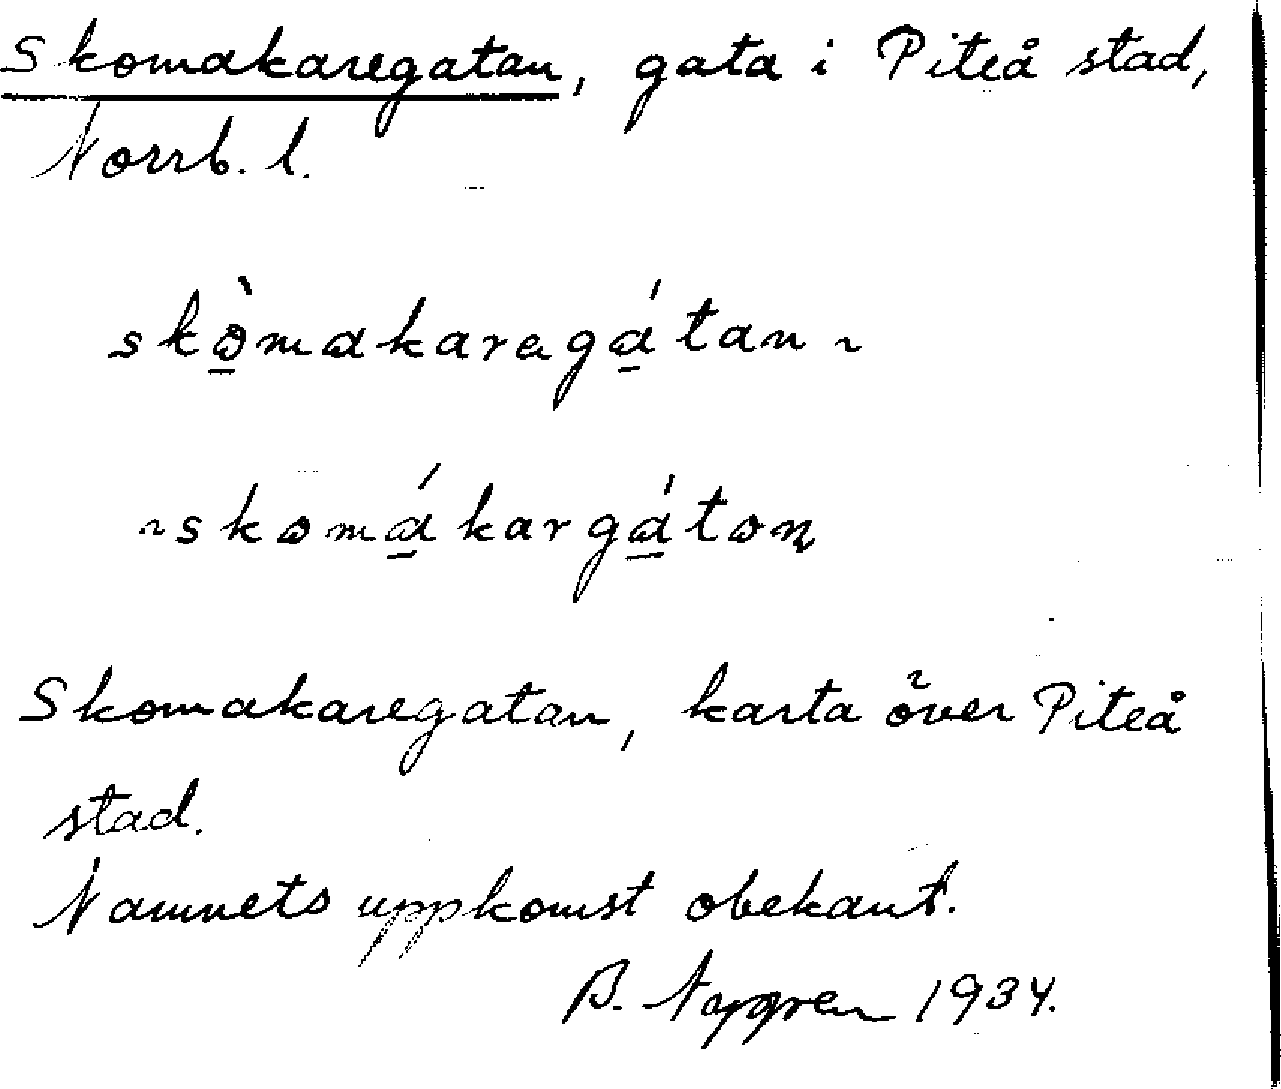 Skomakaregatan, gata i Piteå stad,
Norrb. l.
skò̱makaregá̱tan ~
~skomá̱kargá̱ton
Skomakaregatan, karta över Piteå
stad.
Namnets uppkomst obekant.
B. Nygren 1934.